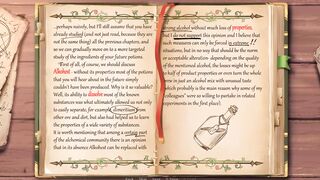 -perhaps naively, but I'll still assume that you have
already studied (and not just read, because they are
not the same thing) all the previous chapters, and
so we can gradually move on to a more targeted
study of the ingredients of your future potions.
"First of all, of course, we should discuss
Alkohest - without its properties most of the potions
that you will hear about in the future simply
couldn't have been produced. Why is it so valuable?
Well, its ability to dissolve most of the known
substances was what ultimately allowed us not only
to easily separate, for example, elementium from
other ore and dirt, but also had helped us to learn
the properties of a wide variety of substances.
It is worth mentioning that among a certain part
of the alchemical community there is an opinion
that in its absence Alkohest can be replaced with
strong alcohol without much loss of properties,
but I do not support this opinion and I believe that
such measures can only be forced in extreme !!
situations, but in no way that should be the norm
or acceptable alteration: depending on the quality
of the mentioned alcohol, the losses might be up
to half of product properties or even turn the whole
brew in just an alcohol mix with unusual taste
(which probably is the main reason why some of my
"colleagues" were so willing to partake in related
experiments in the first place).